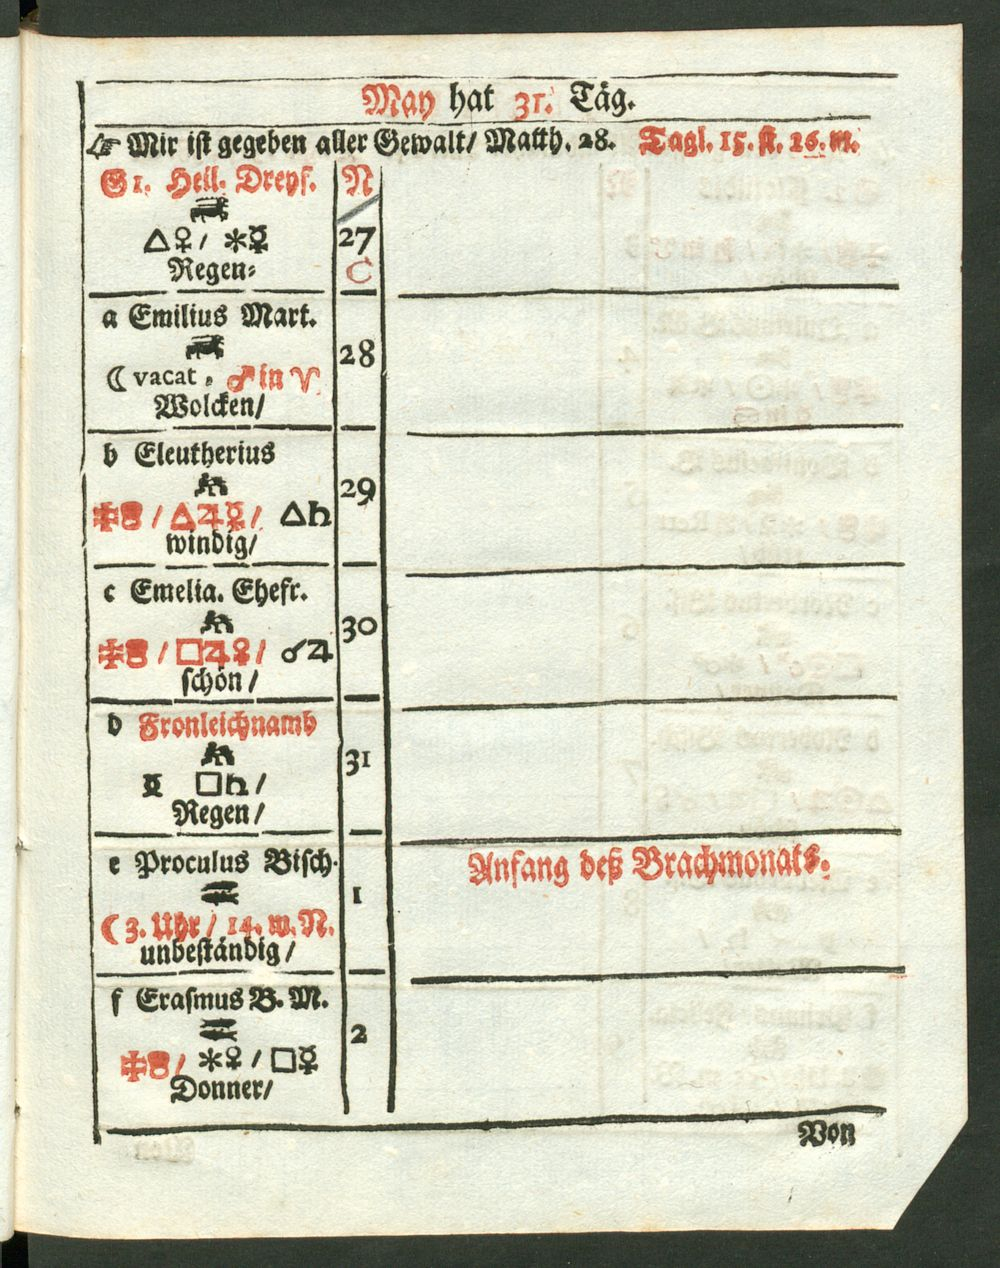 May hat 31. Täg.
☞ Mir ist gegeben aller Gewalt/ Matth. 28. Tagl. 15. st. 26. m.
G 1. Heil. Dreyf. N
△♀/ ✶☿ 27
Regen⸗ C
a Emilius Mart.
28
☾ vacat. ♂ in ♈
Wolcken/
b Eleutherius
29
/ △♃☿/ △♄
windig/
c Emelia. Ehefr.
30
/ □♃♀/ ☌♃
schön/
d Fronleichnamb
31
□♄/
Regen/
e Proculus Bisch.
Anfang deß Brachmonats.
1
☾ 3. Uhr/ 14. m. N.
unbeständig/
f Erasmus B. M.
2
/ ✶♀/ □☿
Donner/
Von